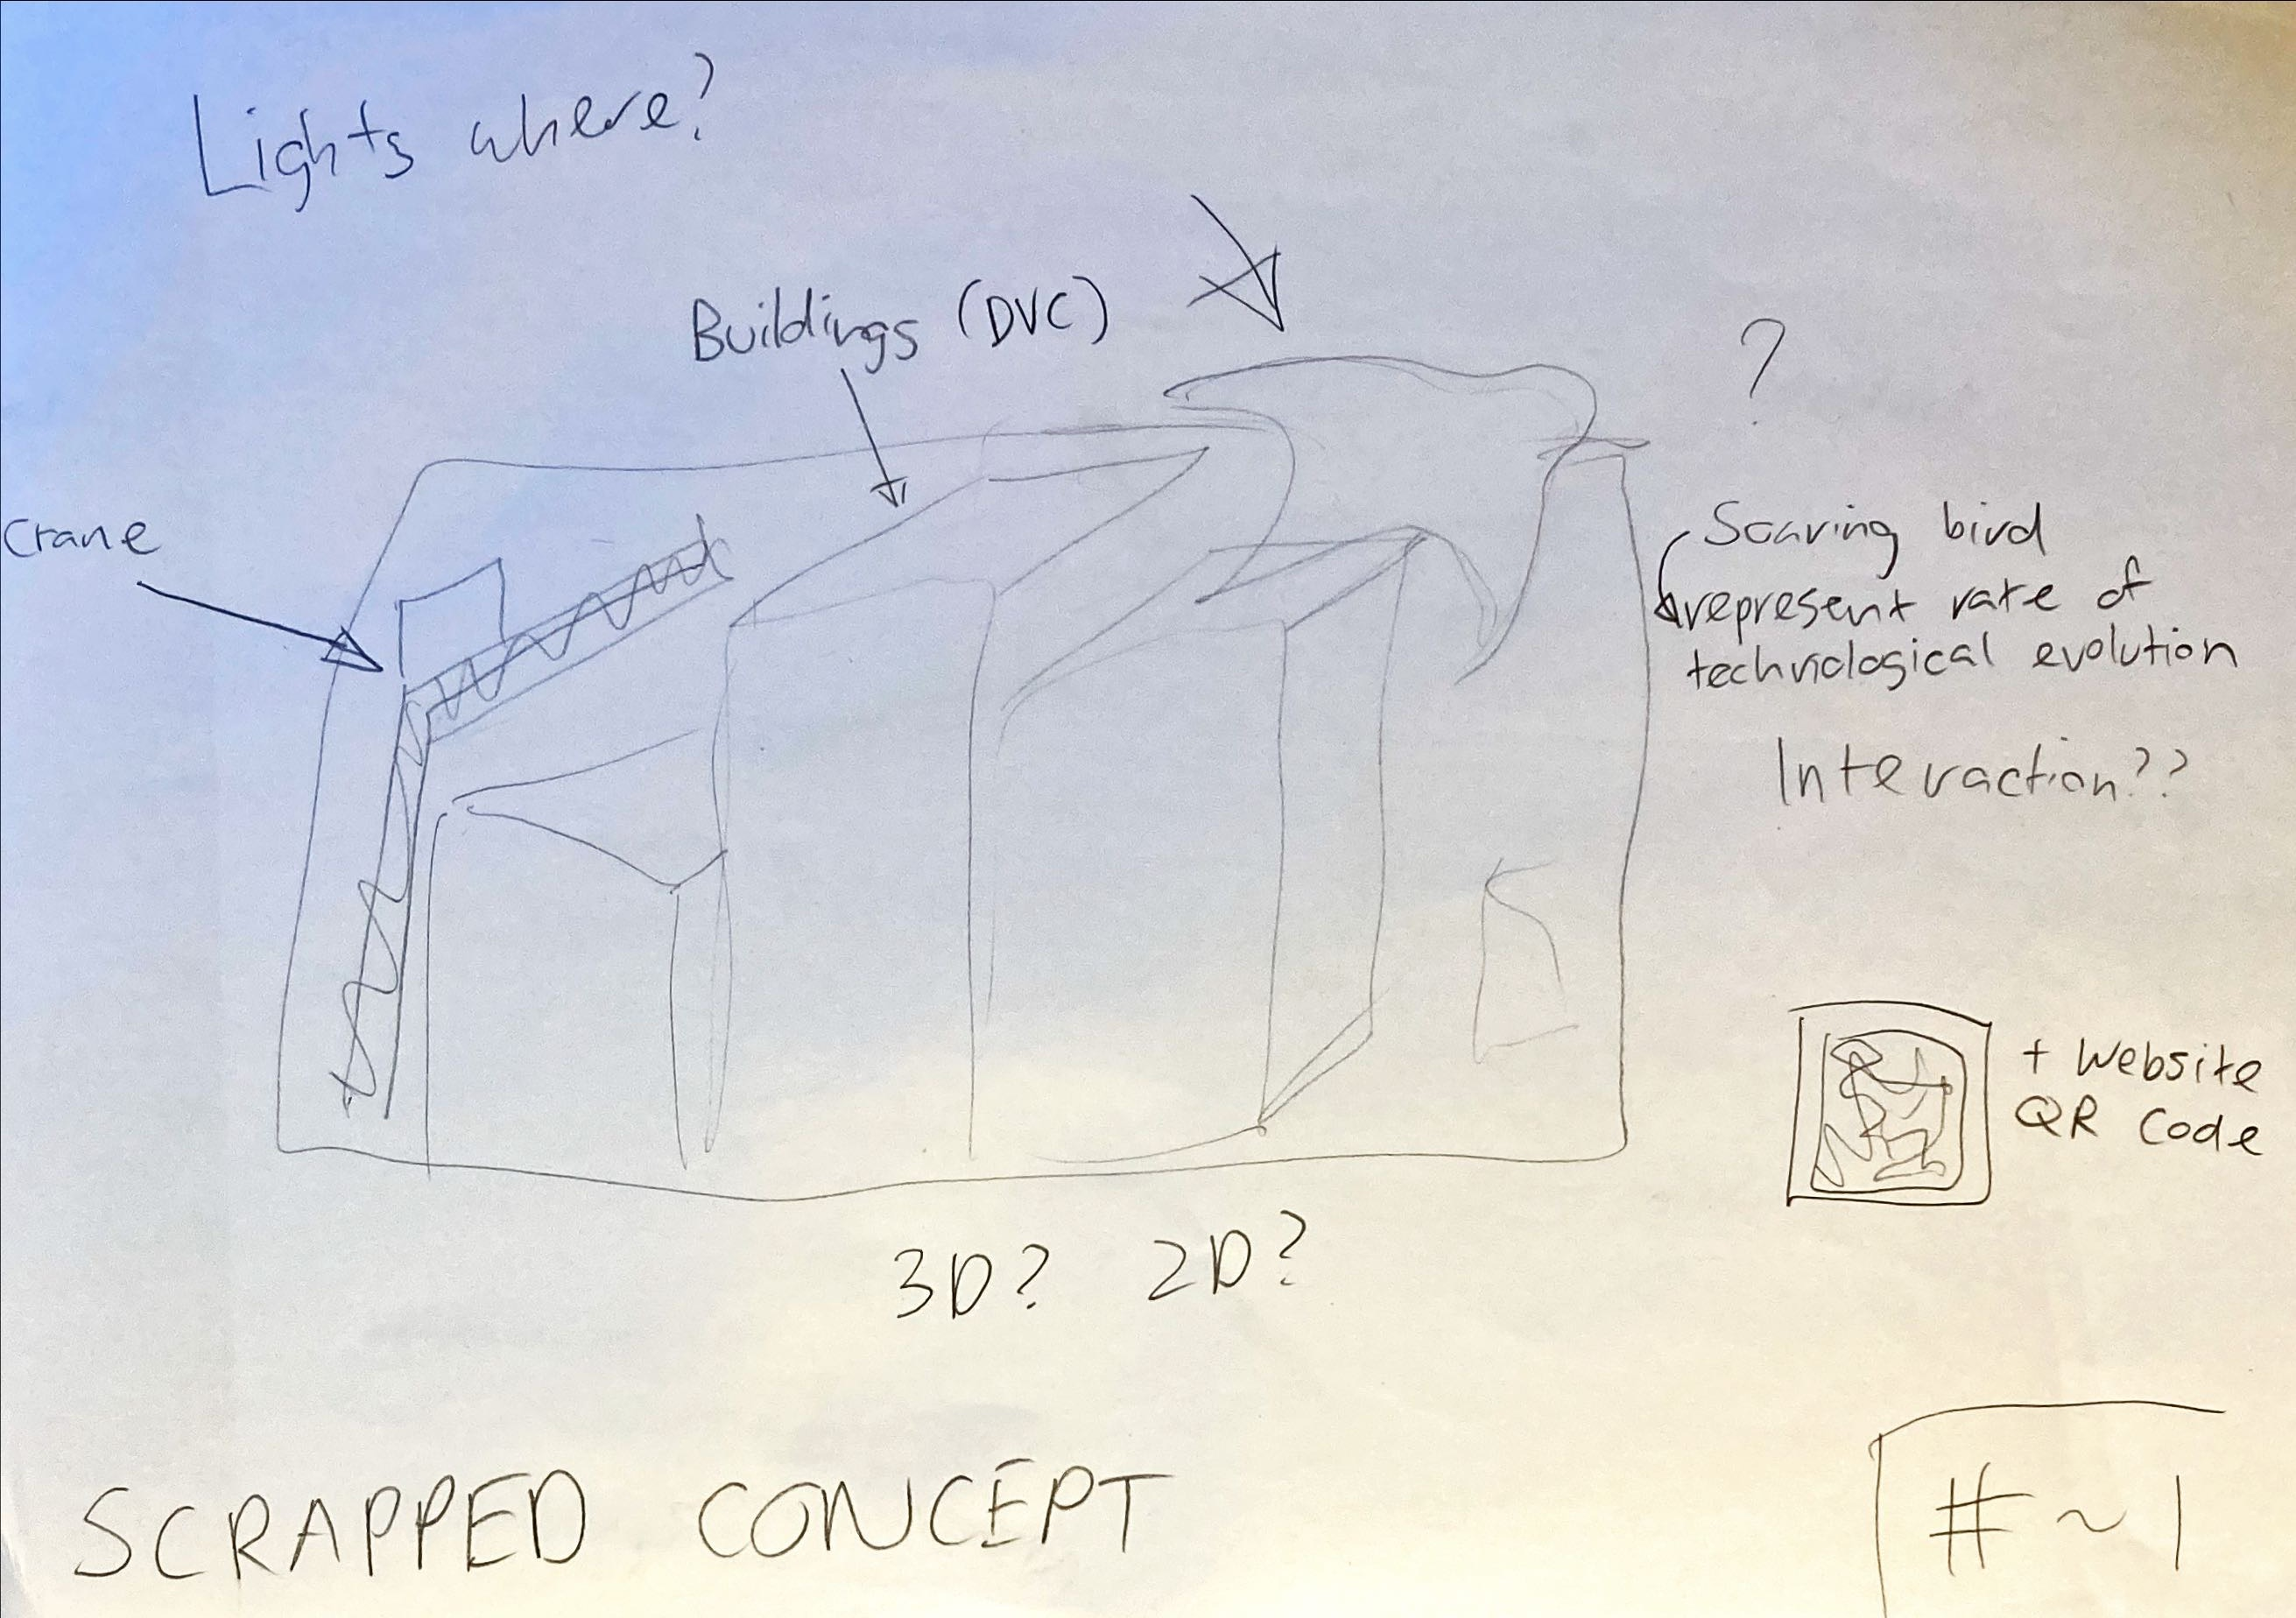 Lights where?
Buildings (DVC)
?
Crane
Soaring bird
represent rate of
technological evolution
Interaction??
+ Website
QR Code
3D? 2D?
SCRAPPED CONCEPT
#~1